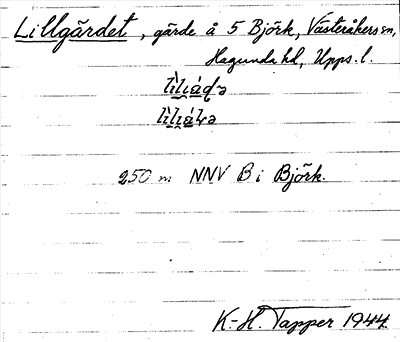 Lillgärdet, gärde å 5 Björk, Västeråkers sn,
Hagunda hd, Upps. l.
250 m NNV B i Björk.
K-H. Tapper 1944.